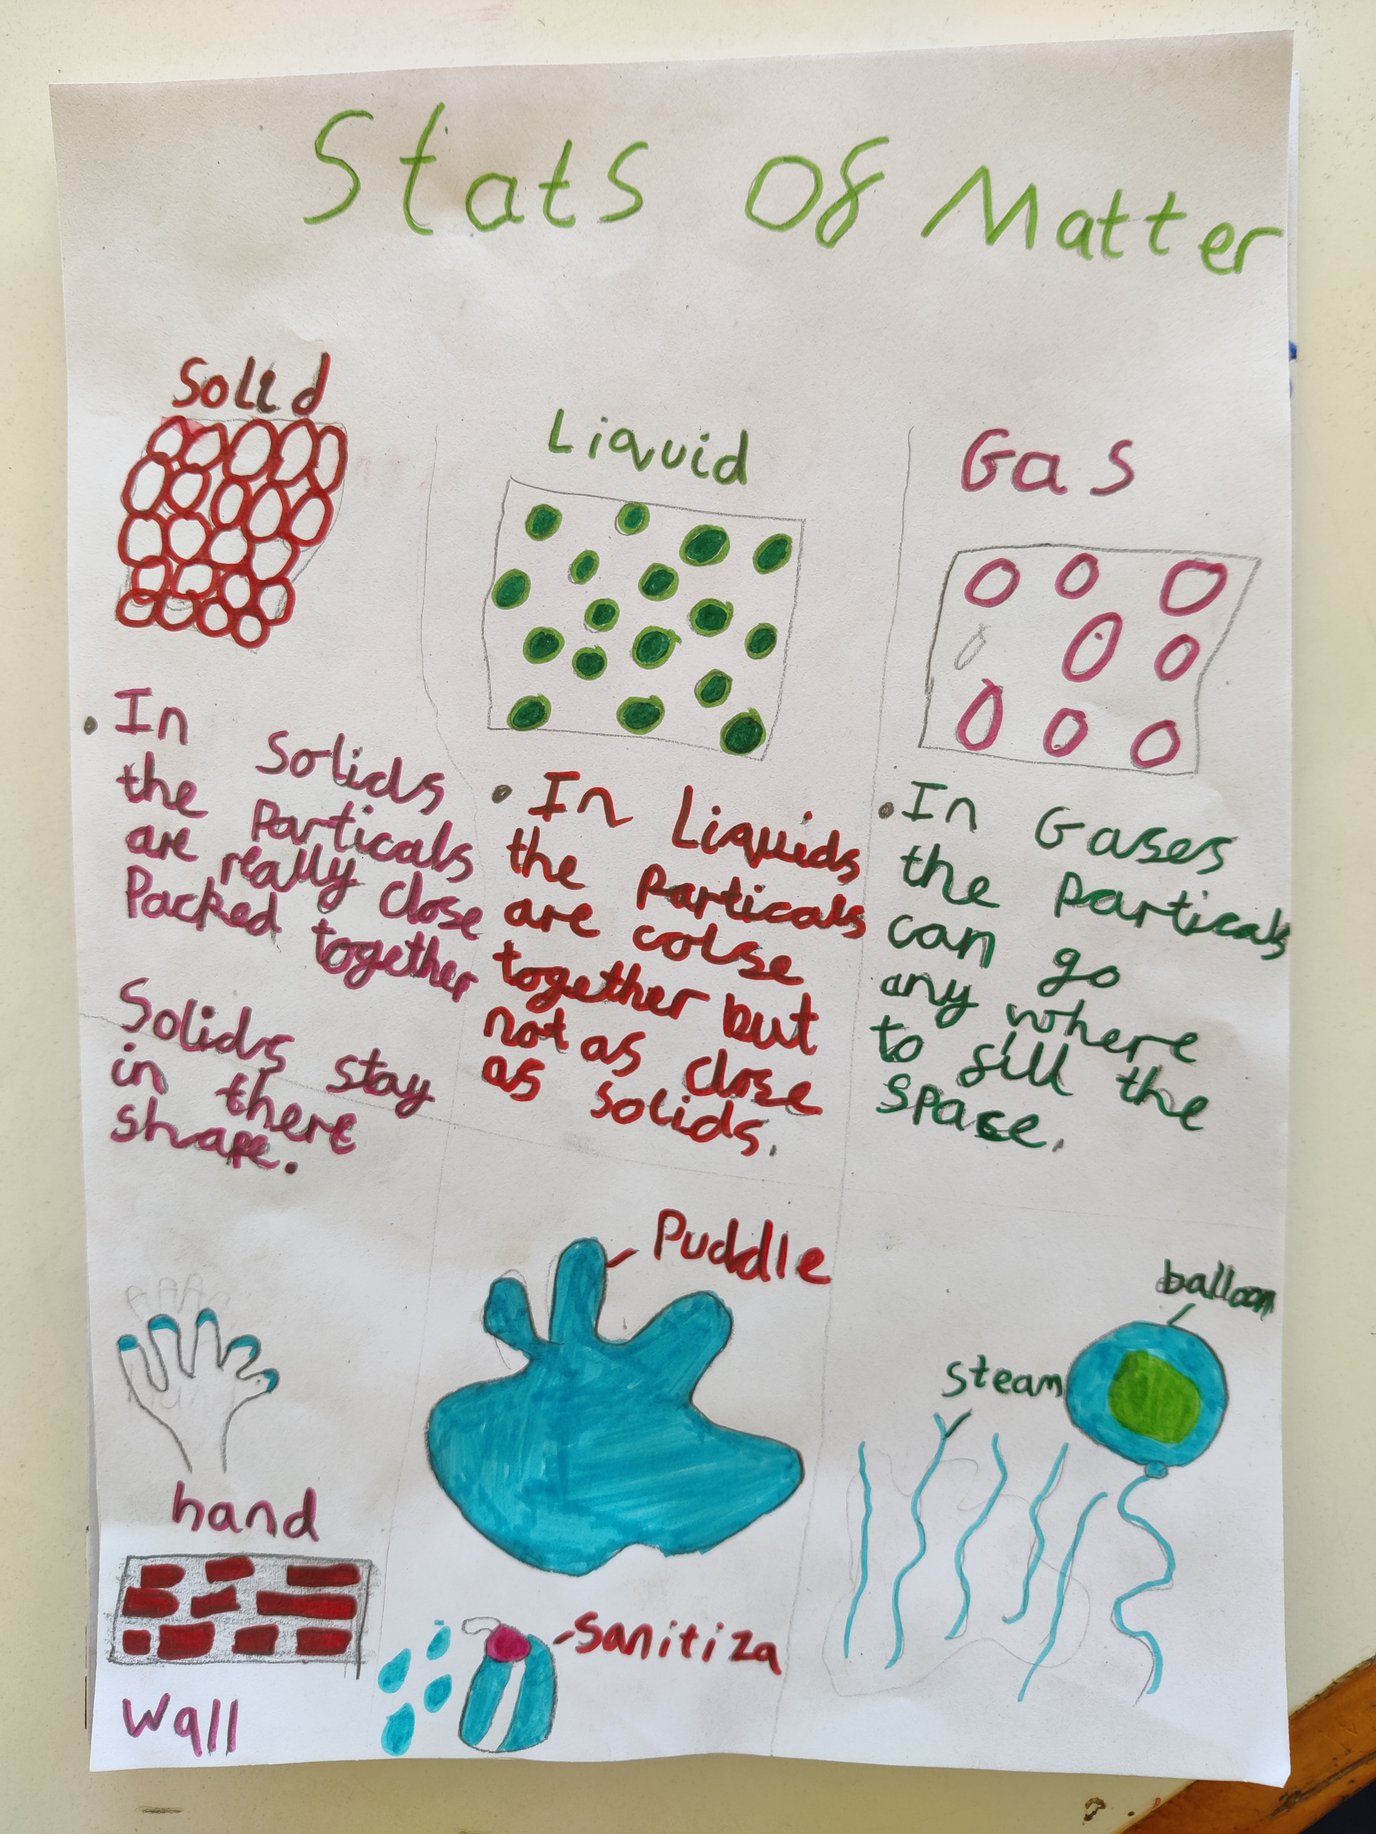 Stats Of Matter
Solid
Liquid
Gas
• In
Solids
the Particals
are really close
Packed together
Solids stay
in there
shape.
• In Liquids
the Particals
are colse
together but
not as close
as solids.
• In Gases
the particals
can go
any where
to fill the
space.
hand
Wall
Puddle
Sanitiza
balloon
steam